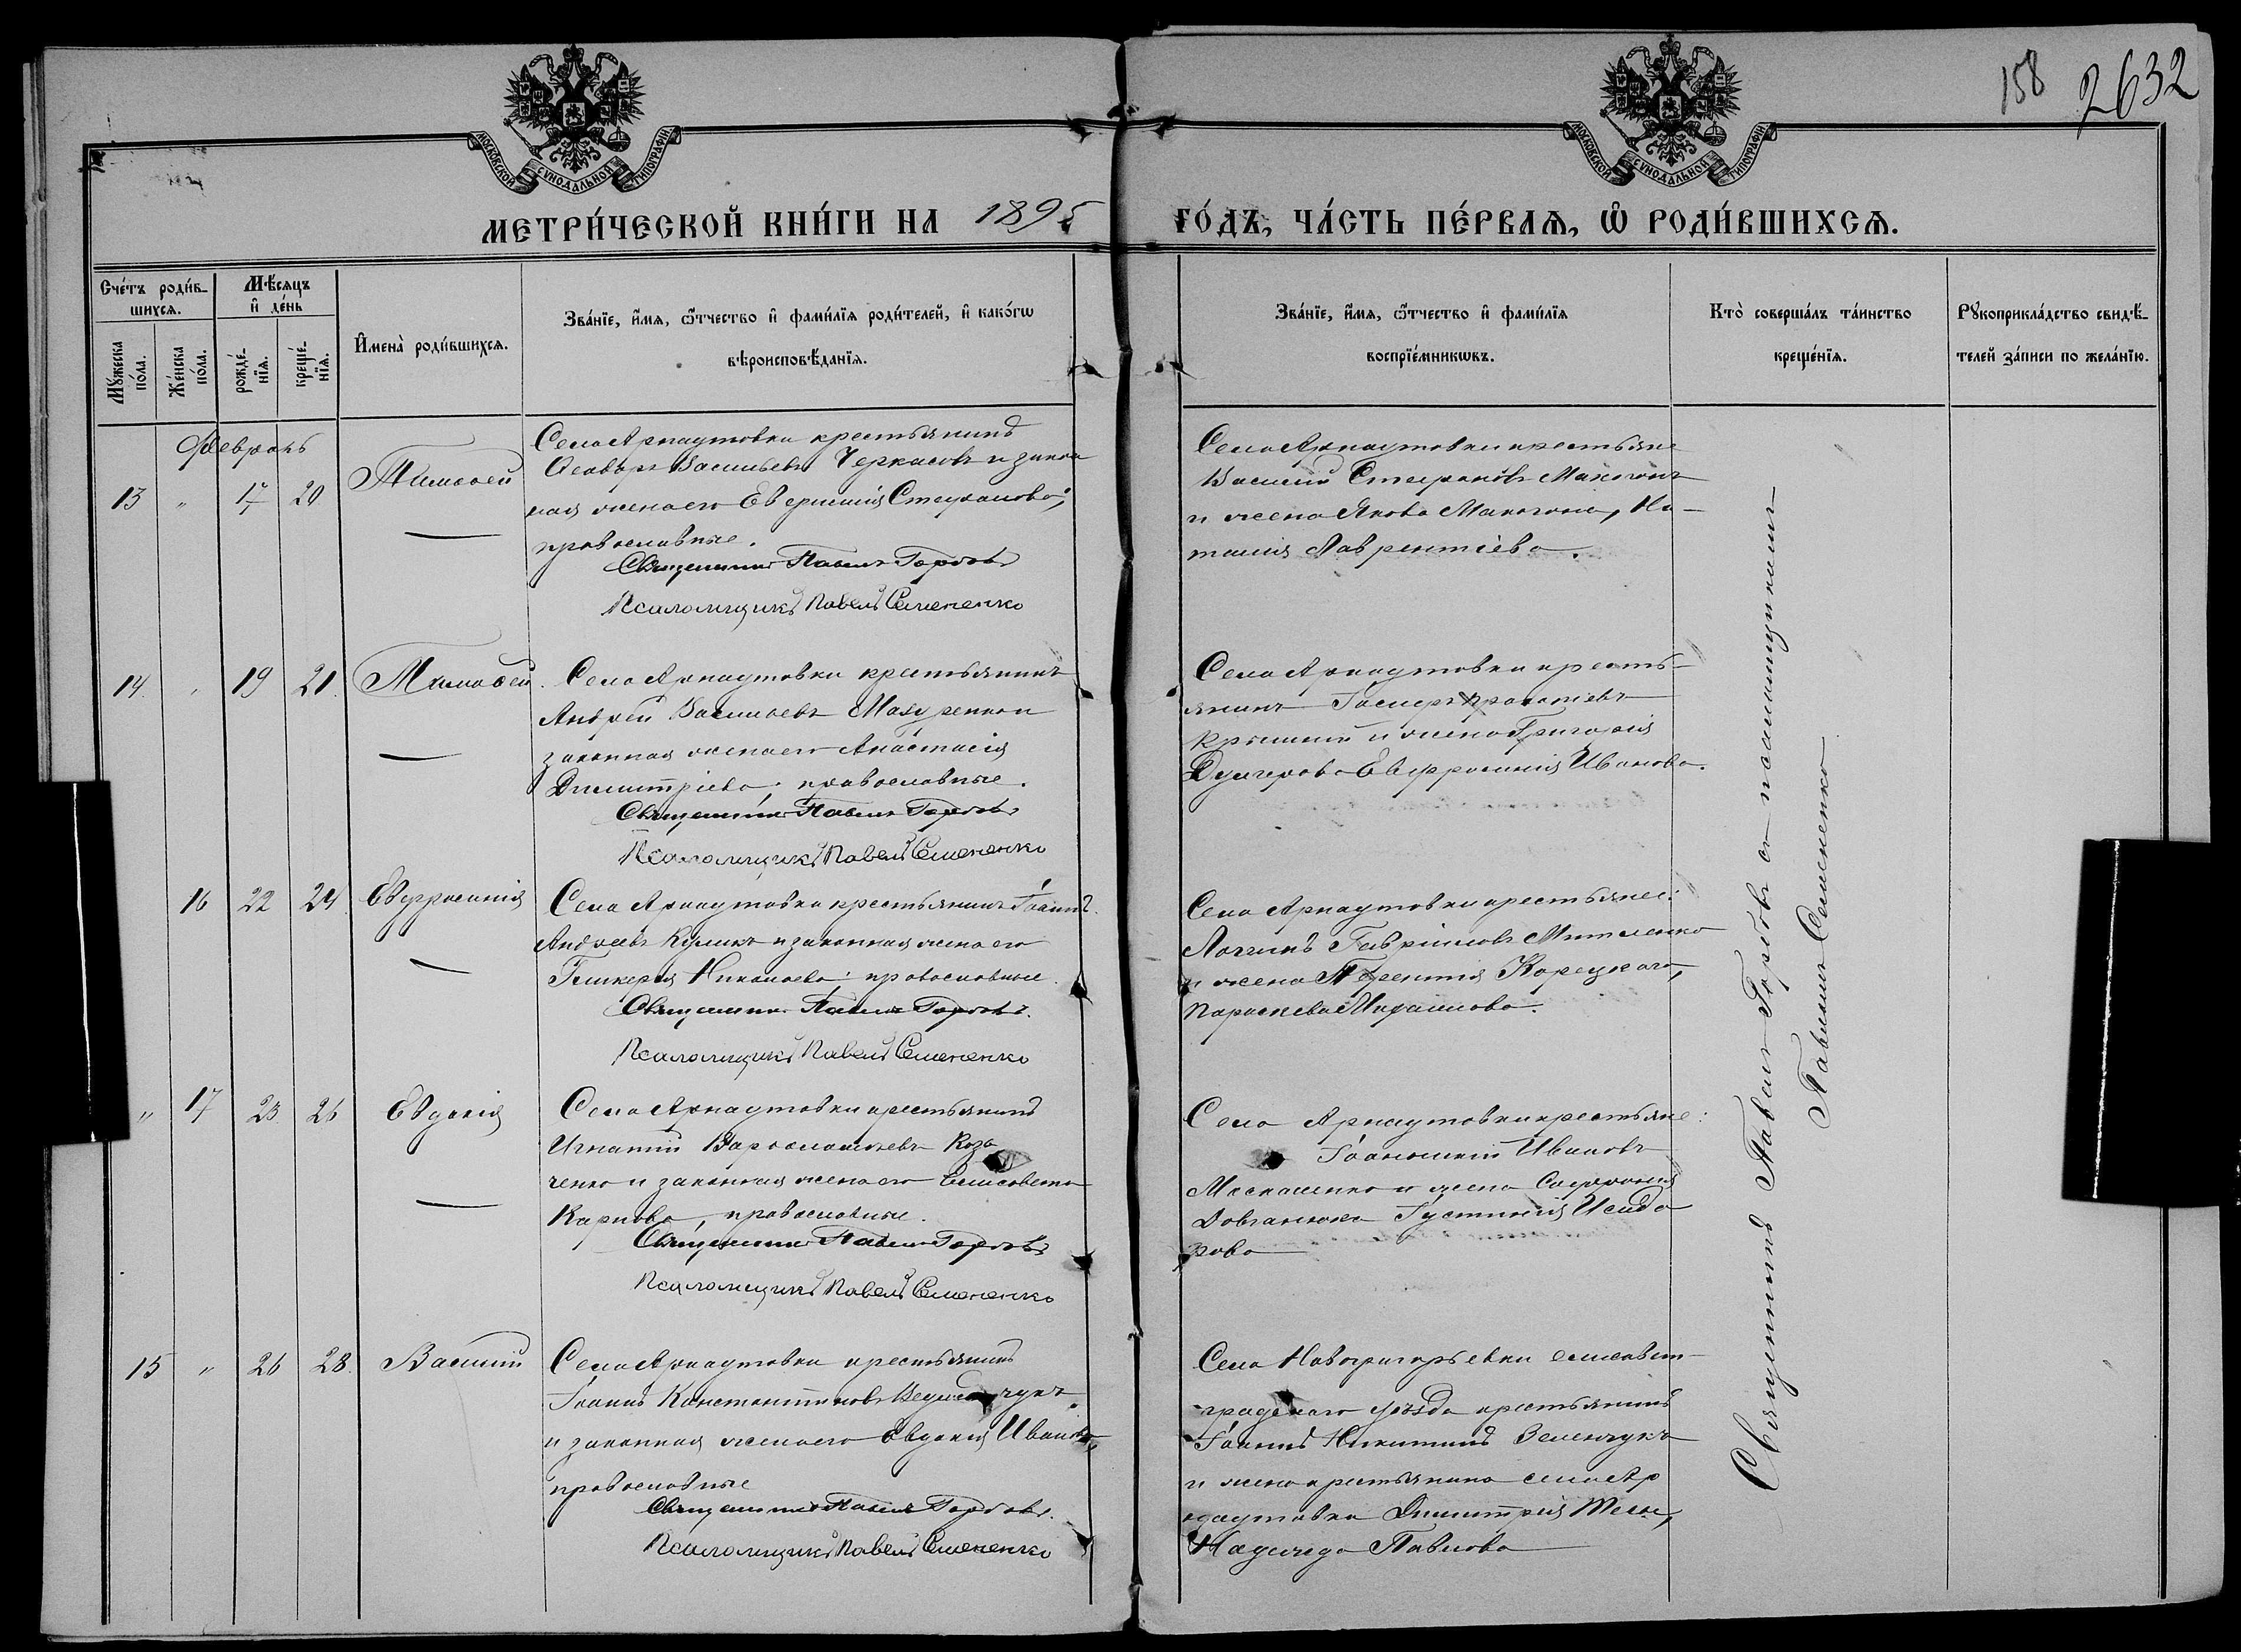 158 2632
МОСКОВСКОЙ СУНОДАЛЬНОЙ ТИПОГРАФІИ
МОСКОВСКОЙ СУНОДАЛЬНОЙ ТИПОГРАФІИ
МЕТРИ́ЧЕСКОЙ КНИ́ГИ НА 1895 ГО́ДЪ, ЧА́СТЬ ПЕ́РВАѦ, Ѡ҆ РОДИ́ВШИХСѦ.
Сче́тъ роди́в-
шихсѧ.
Мꙋ́жеска по́ла.
Же́нска по́ла.
Мѣ́сѧцъ
и҆ де́нь
рожде́-
нїѧ.
креще́-
нїѧ.
И҆мена̀ роди́вшихсѧ.
Зва́нїе, и҆́мѧ, ѻ҆́тчество и҆ фами́лїѧ роди́телей, и҆ како́гѡ
вѣроисповѣ́данїѧ.
Зва́нїе, и҆́мѧ, ѻ҆́тчество и҆ фами́лїѧ
воспрїе́мникѡвъ.
Кто̀ соверша́лъ та́инство
креще́нїѧ.
Рꙋкоприкла́дство свидѣ́-
телей за́писи по жела́нїю.
Февраль
13 " 17 20 Тимофей
Села Арнаутовки крестьянинъ
Ѳеодоръ Васильевъ Черкасовъ и закон
ная жена его Евфимія Стефанова;
православные.
Священникъ Павелъ Горбовъ
Псаломщикъ Павелъ Семененко
Села Арнаутовки крестьяне
Василій Стефановъ Макогонъ
и жена Якова Макогона, На-
талія Лаврентіева.
14. " 19 21. Тимофей.
Села Арнаутовки крестьянинъ
Андрей Васильевъ Мазуренко и
законная жена его Анастасія
Димитріева; православные.
Священникъ Павелъ Горбовъ
Псаломщикъ Павелъ Семененко
Села Арнаутовки кресть-
янинъ
и жена Григорія
Евфросинія Иванова.
16 22 24. Евфросинія
Села Арнаутовки крестьянинъ Іоаннъ
Андреевъ Куликъ и законная жена его
Гликерія Николаева; православные.
Священникъ Павелъ Горбовъ.
Псаломщикъ Павелъ Семененко
Села Арнаутовки крестьяне:
Логгинъ Гавріиловъ
и жена Терентія Корецкаго,
Параскева Михаилова.
" 17 23 26 Евдокія
Села Арнаутовки крестьянинъ
Игнатій Варѳоломеевъ Коза
ченко и законная жена его Елисавета
Карпова, православные.
Священникъ Павелъ Горбовъ
Псаломщикъ Павелъ Семененко
Села Арнаутовки крестьяне:
Ивановъ
Москаленко и жена Софронія
Довганюка Іустинія Исидо
рова
15 " 26 28. Василій
Села Арнаутовки крестьянинъ
Іоаннъ Константиновъ
и законная жена его Евдокія Иванова
православные
Священникъ Павелъ Горбовъ.
Псаломщикъ Павелъ Семененко
Села Новогригорьевки елисавет-
градскаго уѣзда крестьянинъ
Іоаннъ Никитинъ Зеленчукъ
и жена крестьянина села Ар
наутовки Димитрія
Надежда Павлова
Священникъ Павелъ Горбовъ съ псаломщикомъ
Павломъ Семененко